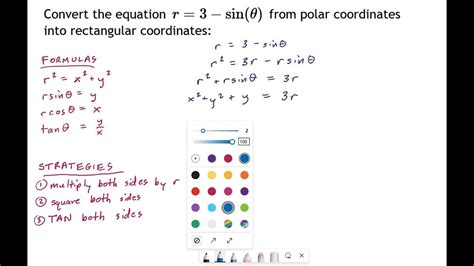 Convert the equation r = 3 − sin(θ) from polar coordinates
into rectangular coordinates:
FORMULAS
r² = x² + y²
r sinθ = y
r cosθ = x
tanθ = y/x
r = 3 − sinθ
r² = 3r − r sinθ
r² + r sinθ = 3r
x² + y² + y = 3r
2
100
STRATEGIES
① multiply both sides by r
② square both sides
③ TAN both sides